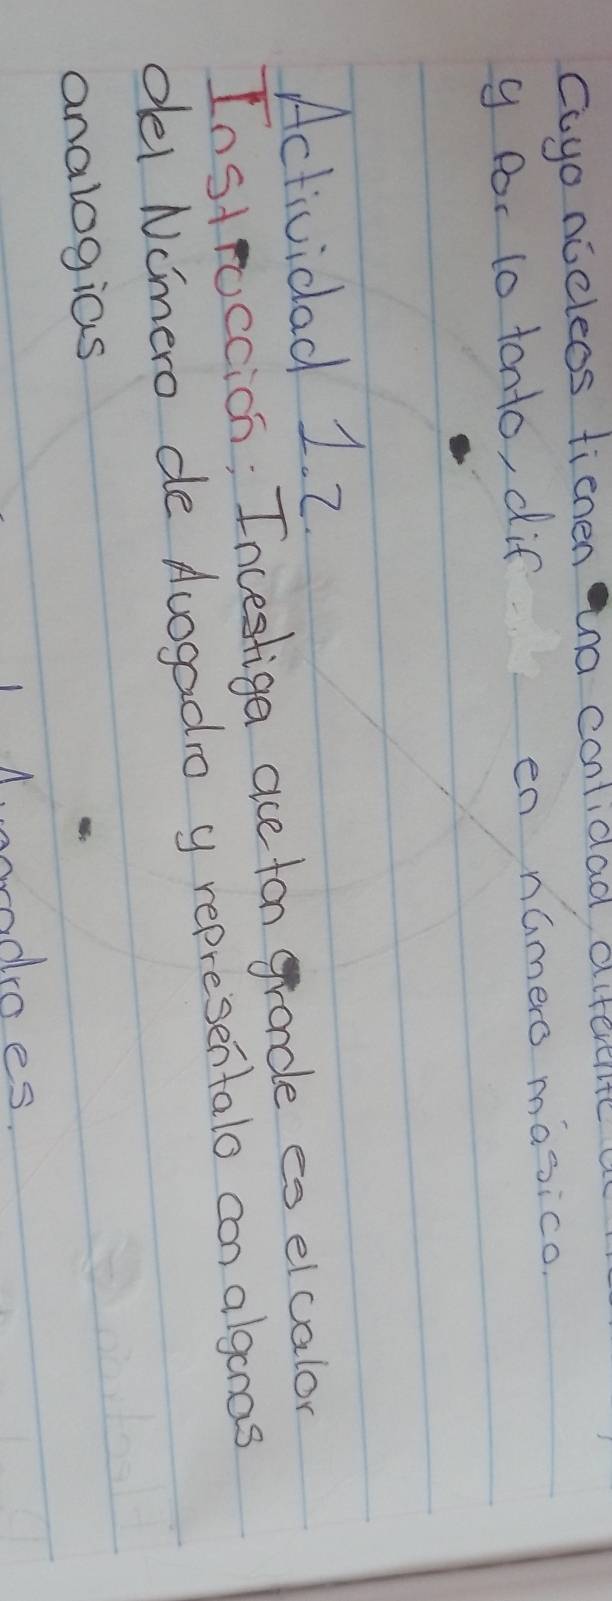 cuyo núcleos tienen una cantidad diferente
y por lo tanto, dif en número másico.
Actividad 1.2.
Instrucción: Investiga que tan grande es el valor
del Número de Avogadro y represéntalo con algunas
analogías
es.